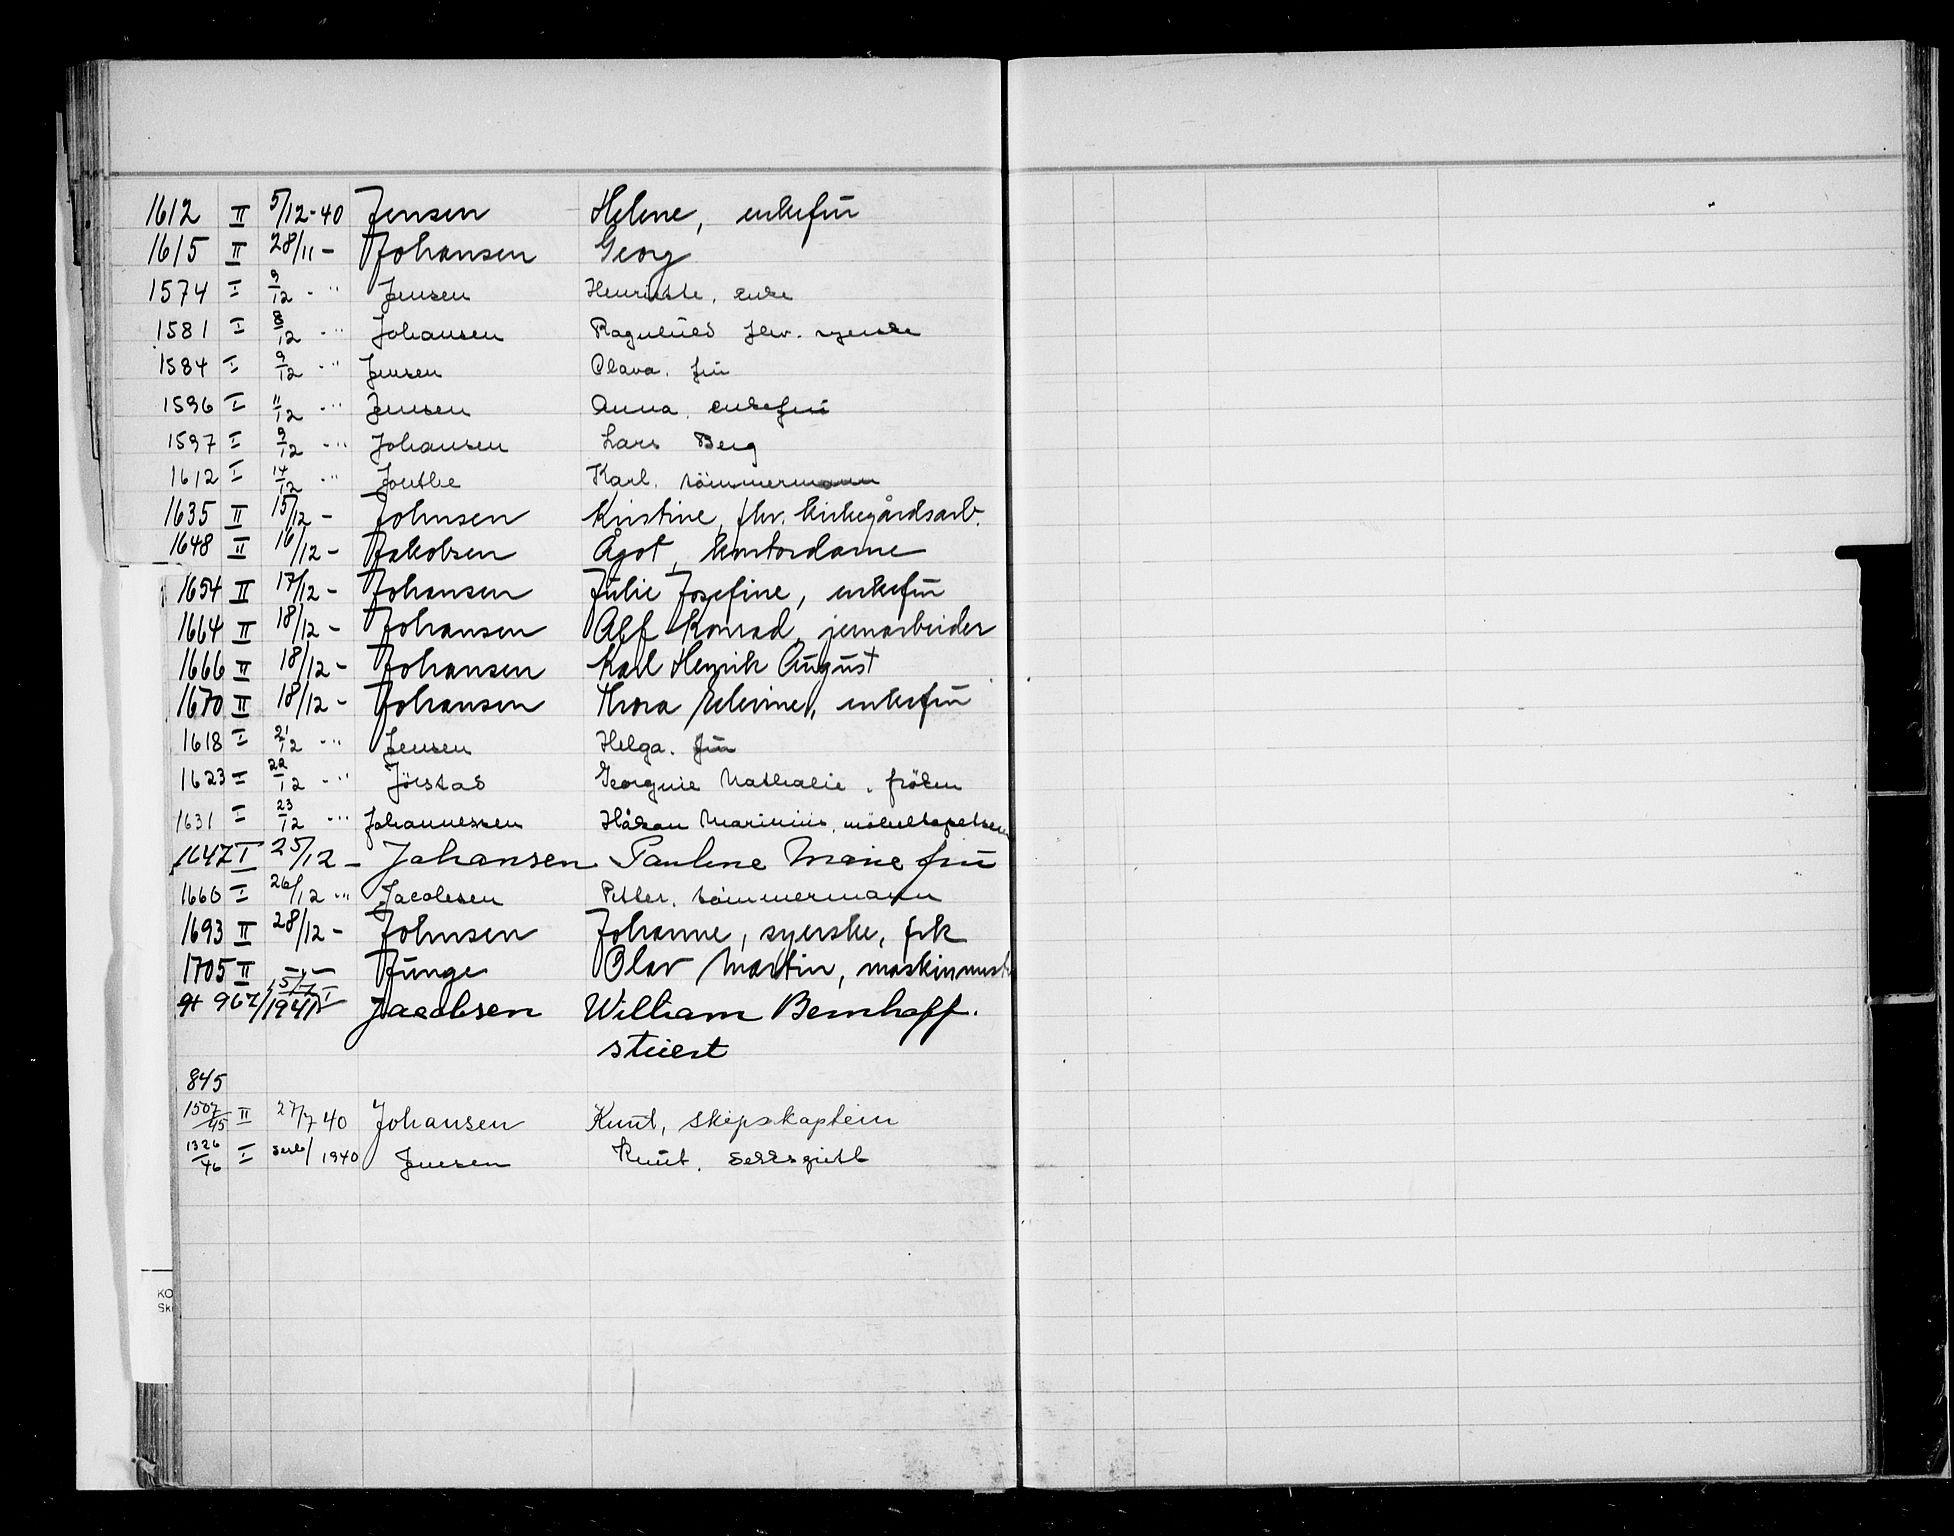 1612 II 5/12-40 Jensen Helene, enkefrü
1615 II 28/11 - Johansen Georg
1574 I 9/12 - " Jensen Henriette, enke
1581 I 8/12 - " Johansen Ragnhild fhv. syerske
1584 I 9/12 - " Jensen Olava. frü
1596 I 11/12 - " Jensen Anna. enkefrü
1597 I 9/12 - " Johansen Lars Berg
1612 I 14/12 - " Karl. tömmermann
1635 II 15/12 - Johnsen Kristine, fhv. kirkegårdsarb.
1648 II 16/12 - Jakobsen Ågot, kontordame
1654 II 17/12 - Johansen Julie Josefine, enkefrü
1664 II 18/12 - Johansen Alf Konrad, jernarbeider
1666 II 18/12 - Johansen Karl Henrik Aügüst
1670 II 18/12 - Johansen Thora Elevine, enkefrü
1618 I 21/12 - " Jensen Helga. frü
1623 I 22/12 - " Jörstad Georgine Nathalie, fröken
1631 I 23/12 - " Johannessen Håkon Marinius, möbeltapetserer
1647 I 25/12 - Johansen Pauline Marie frü
1660 I 26/12 - " Jacobsen Petter. tömmermann
1693 II 28/12 - Johnsen Johanne, syerske, frk
1705 II - " - Jünge Olav Martin, maskinmest
967/1941 I 5/7 Jacobsen William Bernhoff.
stüert
845
1507/45 II 27/7 40 Johansen Knüt, skipskaptein
1326/46 I sept/1940 Jensen Knüt. dekksgütt